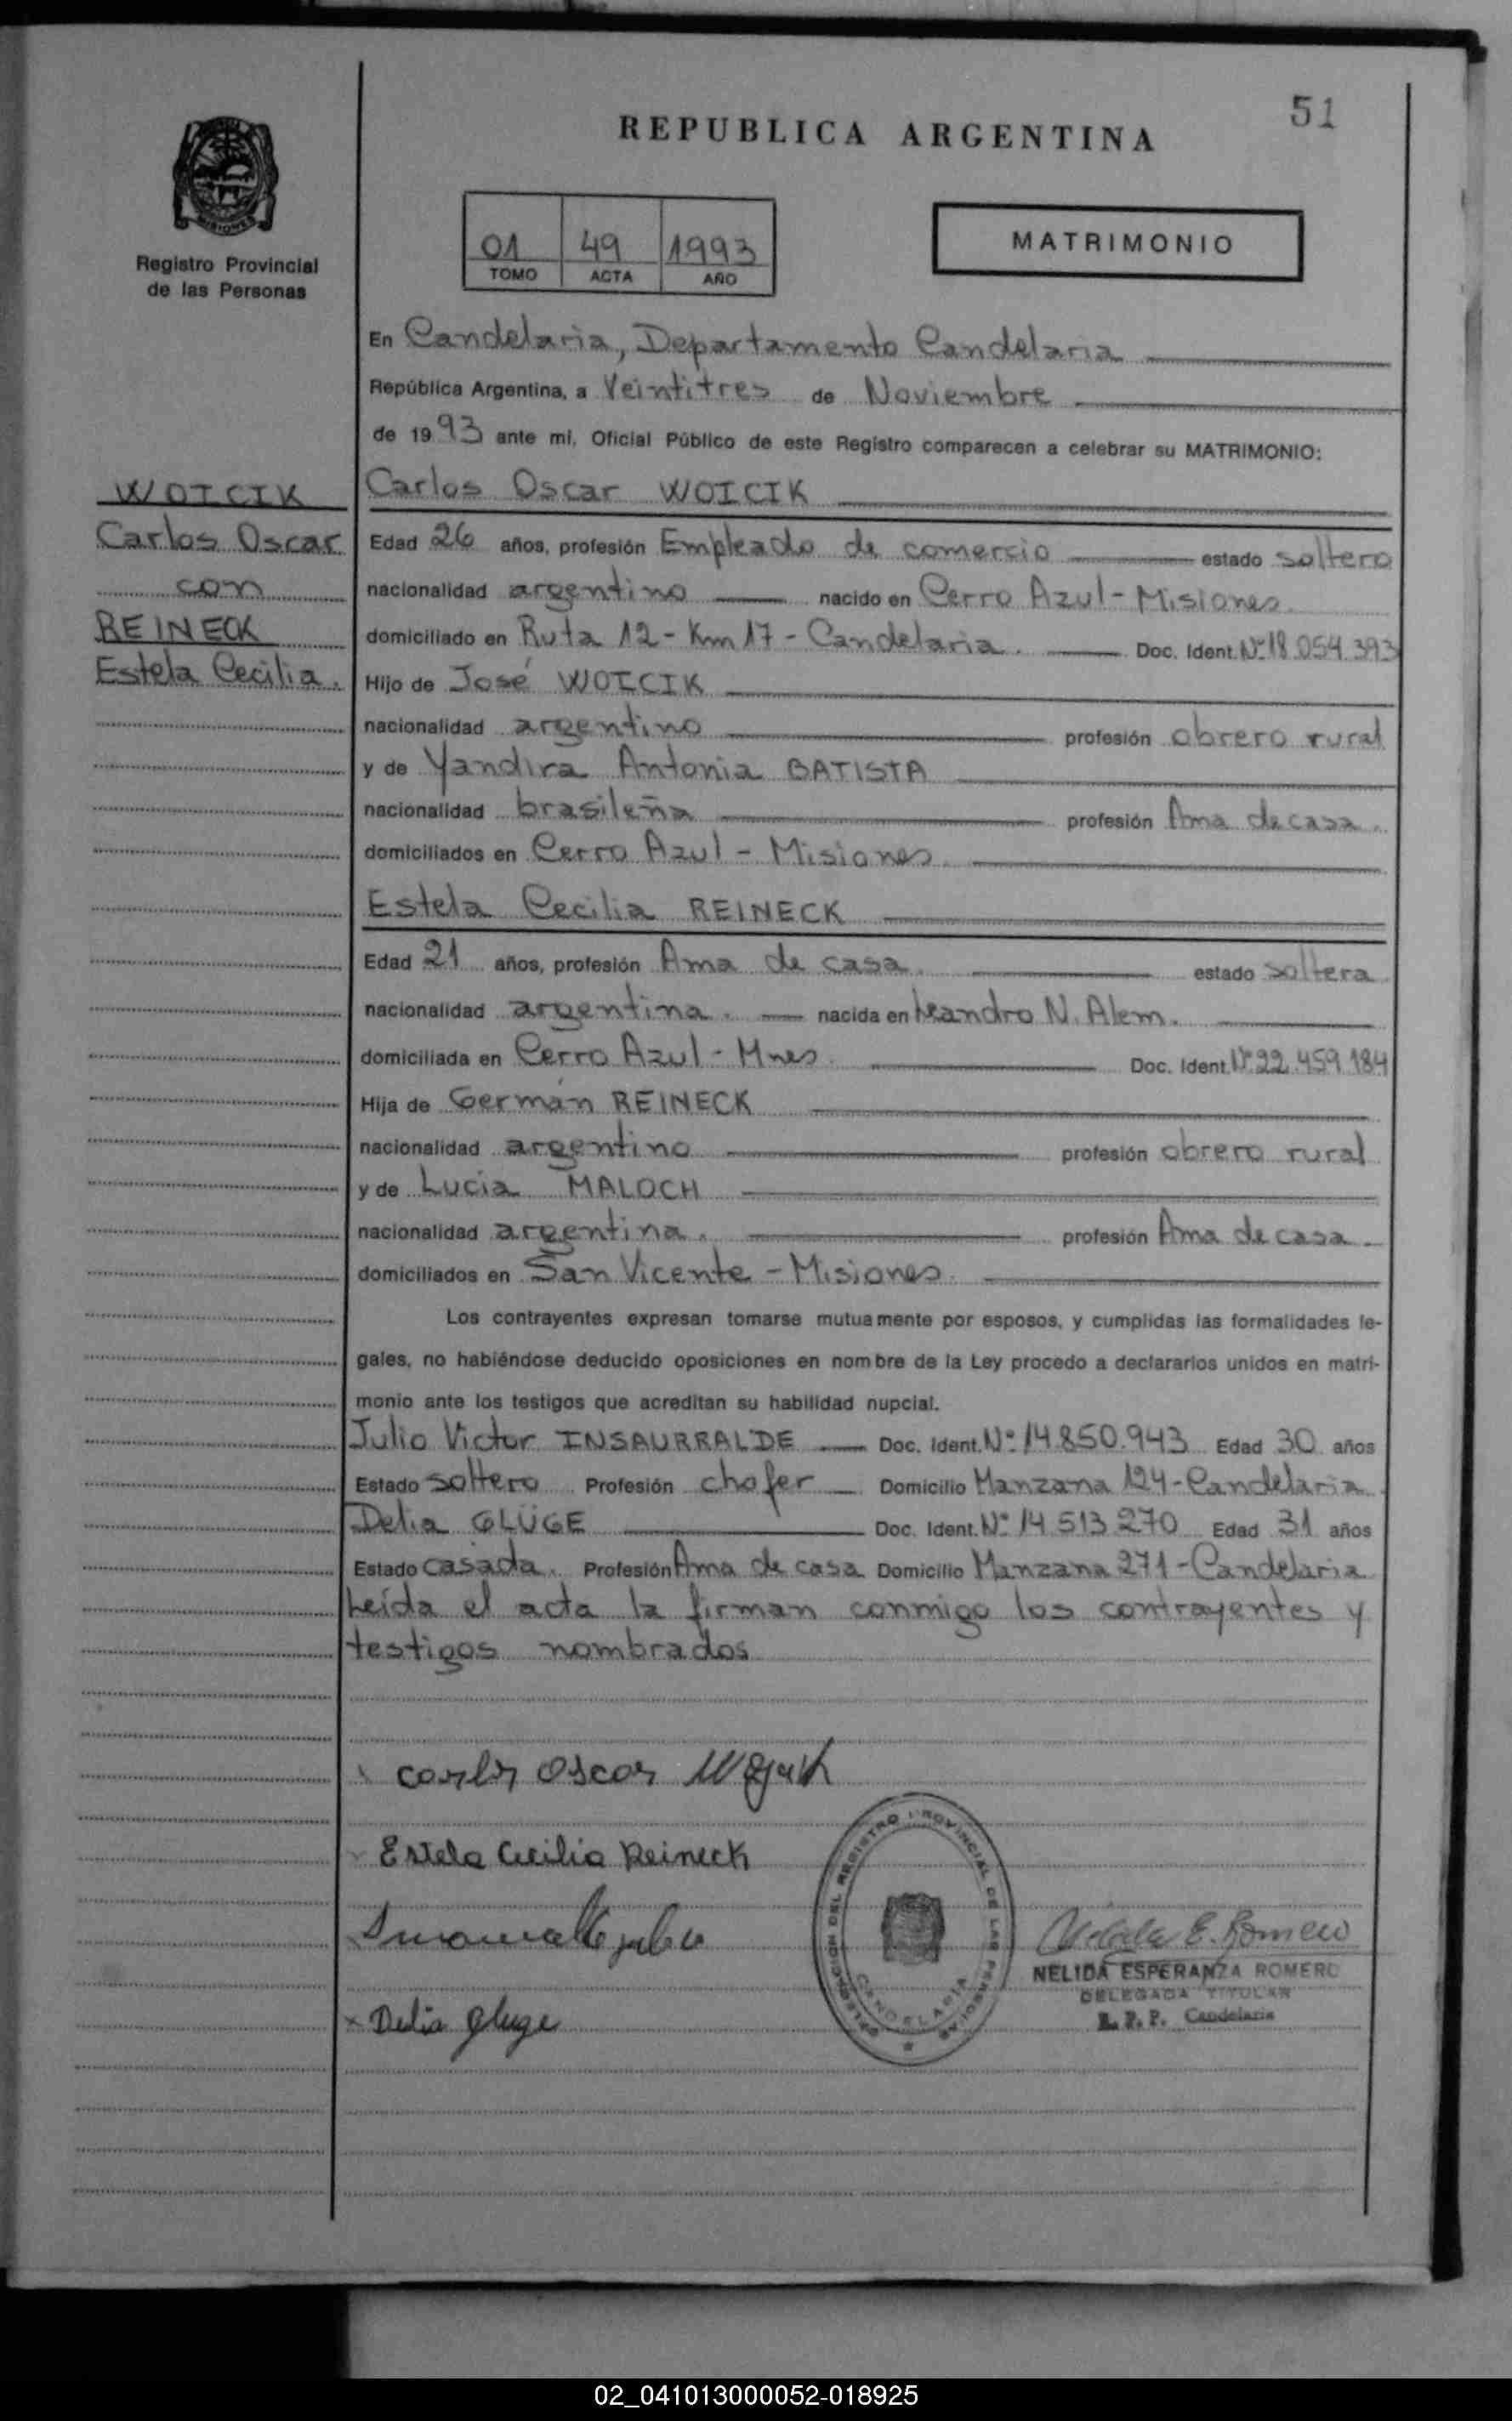 51
REPUBLICA ARGENTINA
MISIONES
Registro Provincial
de las Personas
01 49 1993
TOMO ACTA AÑO
MATRIMONIO
En Candelaria, Departamento Candelaria
República Argentina, a Veintitres de Noviembre
de 1993 ante mi, Oficial Público de este Registro comparecen a celebrar su MATRIMONIO:
WOICIK
Carlos Oscar
con
REINECK
Estela Cecilia.
Carlos Oscar WOICIK
Edad 26 años, profesión Empleado de comercio estado soltero
nacionalidad argentino nacido en Cerro Azul - Misiones.
domiciliado en Ruta 12 - Km 17 - Candelaria. Doc. Ident. Nº 18.054.393
Hijo de José WOICIK
nacionalidad argentino profesión obrero rural
y de Yandira Antonia BATISTA
nacionalidad brasileña profesión Ama de casa.
domiciliados en Cerro Azul - Misiones.
Estela Cecilia REINECK
Edad 21 años, profesión Ama de casa. estado soltera
nacionalidad argentina. nacida en Leandro N. Alem.
domiciliada en Cerro Azul - Mnes. Doc. Ident. Nº 22.459.184
Hija de Germán REINECK
nacionalidad argentino profesión obrero rural
y de Lucia MALOCH
nacionalidad argentina. profesión Ama de casa.
domiciliados en San Vicente - Misiones.
Los contrayentes expresan tomarse mutuamente por esposos, y cumplidas las formalidades le-
gales, no habiéndose deducido oposiciones en nombre de la Ley procedo a declararlos unidos en matri-
monio ante los testigos que acreditan su habilidad nupcial.
Julio Victor INSAURRALDE Doc. Ident. Nº 14.850.943 Edad 30 años
Estado soltero Profesión chofer Domicilio Manzana 124 - Candelaria
Delia GLÜGE Doc. Ident. Nº 14.513.270 Edad 31 años
Estado casada. Profesión Ama de casa Domicilio Manzana 271 - Candelaria
Leída el acta la firman conmigo los contrayentes y
testigos nombrados
Carlos Oscar
Estela Cecilia Reineck
Delia Gluge
DELEGACION DEL REGISTRO PROVINCIAL DE LAS PERSONAS
CANDELARIA
E. Romero
NELIDA ESPERANZA ROMERO
DELEGADA TITULAR
R. P. P. Candelaria
02_041013000052-018925